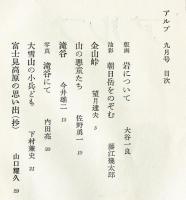 アルプ 九月号 目次
版画 岩について 大谷一良
油彩 朝日岳をのぞむ 藤江幾太郎
金山峠 望月達夫 5
山の悪童たち 佐野勇一 13
滝谷 今井雄二 19
写真 滝谷にて 内田亮 20
大雪山の小兵ども 下村兼史 21
富士見高原の思い出(抄) 山口耀久 29